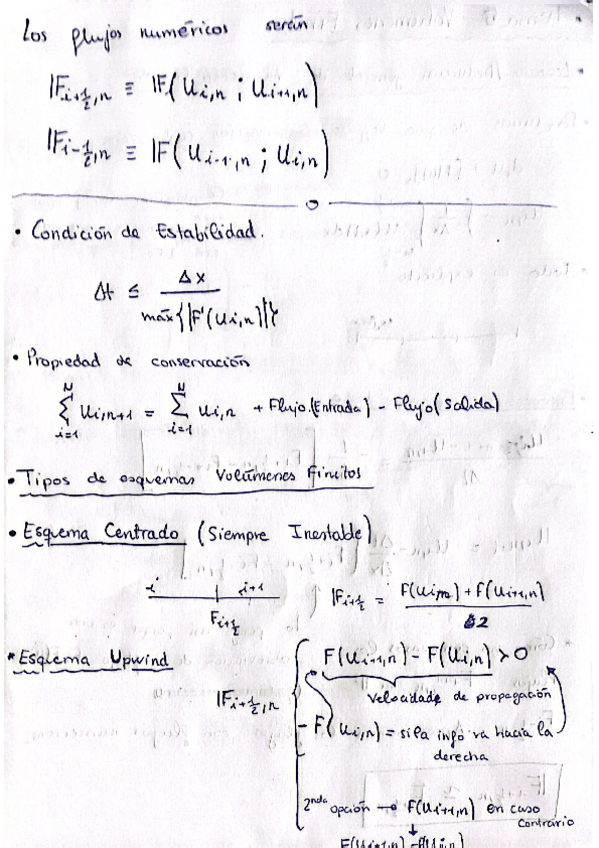 Los flujos numéricos serán
𝔽i+½,n ≡ 𝔽(Ui,n ; Ui+1,n)
𝔽i-½,n ≡ 𝔽(Ui-1,n ; Ui,n)
• Condición de Estabilidad.
Δt ≤ Δx / máx{|F'(Ui,n)|}
• Propiedad de conservación
∑_{i=1}^{N} Ui,n+1 = ∑_{i=1}^{N} Ui,n + Flujo(Entrada) - Flujo(Salida)
• Tipos de esquemas Volúmenes Finitos
• Esquema Centrado (Siempre Inestable)
i i+1 𝔽i+½ = (F(Ui,n) + F(Ui+1,n)) / 2
Fi+½
* Esquema Upwind
F(Ui+1,n) - F(Ui,n) > 0
𝔽i+½,n
Velocidad de propagación
- F(Ui,n) = si la info va hacia la
derecha
2nda opción → F(Ui+1,n) en caso
contrario
F(Ui+1,n) - F(Ui,n)